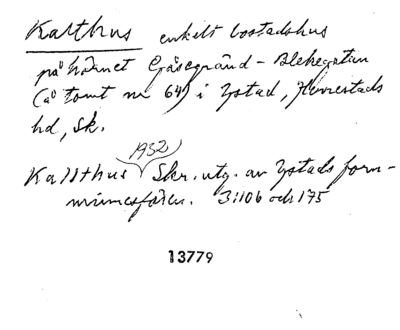 Kalthus enkelt bostadshus
på hörnet Gåsegränd - Blekegatan
(å tomt nr 64) i Ystad, Herrestads
hd, Sk.
1932
Kallthus Skr. utg. av Ystads forn-
minnesfören. 3:106 och 175
13779